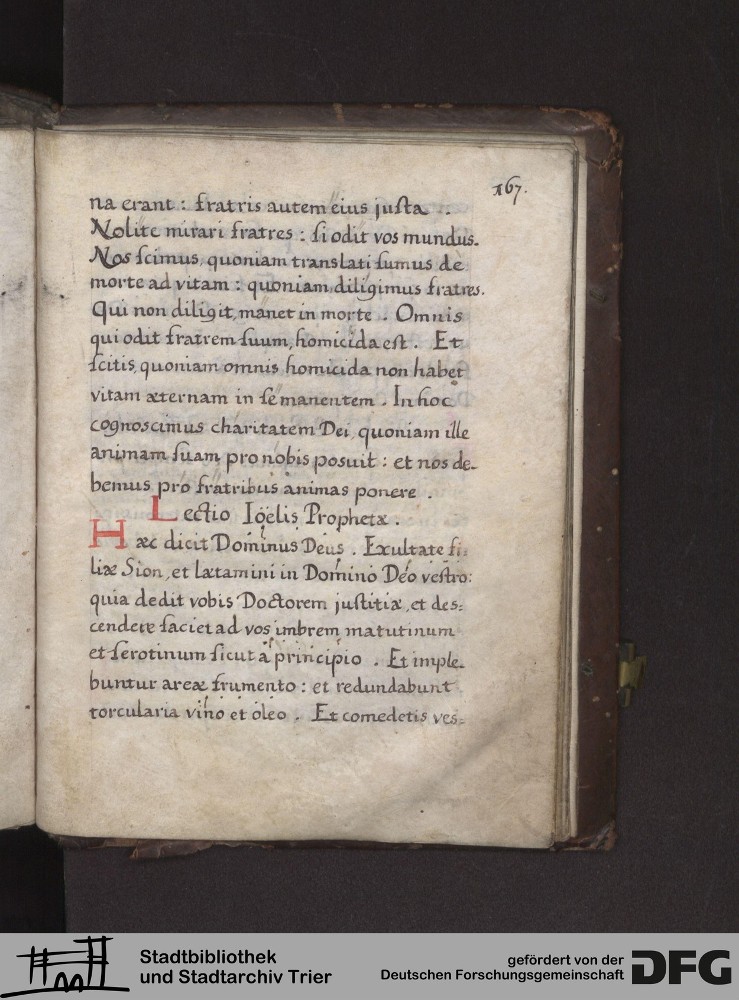 167.
na erant : fratris autem eius justa .
Nolite mirari fratres : si odit vos mundus.
Nos scimus, quoniam translati sumus de
morte ad vitam : quoniam diligimus fratres.
Qui non diligit, manet in morte . Omnis
qui odit fratrem suum, homicida est . Et
scitis, quoniam omnis homicida non habet
vitam æternam in se manentem . In hoc
cognoscimus charitatem Dei, quoniam ille
animam suam pro nobis posuit : et nos de-
bemus pro fratribus animas ponere .
Lectio Ioëlis Prophetæ .
Hæc dicit Dominus Deus . Exultate fi-
liæ Sion, et lætamini in Domino Deo vestro:
quia dedit vobis Doctorem justitiæ, et des-
cendere faciet ad vos imbrem matutinum
et serotinum sicut à principio . Et imple-
buntur areæ frumento : et redundabunt
torcularia vino et oleo . Et comedetis ves-
Stadtbibliothek
und Stadtarchiv Trier
gefördert von der
Deutschen Forschungsgemeinschaft
DFG